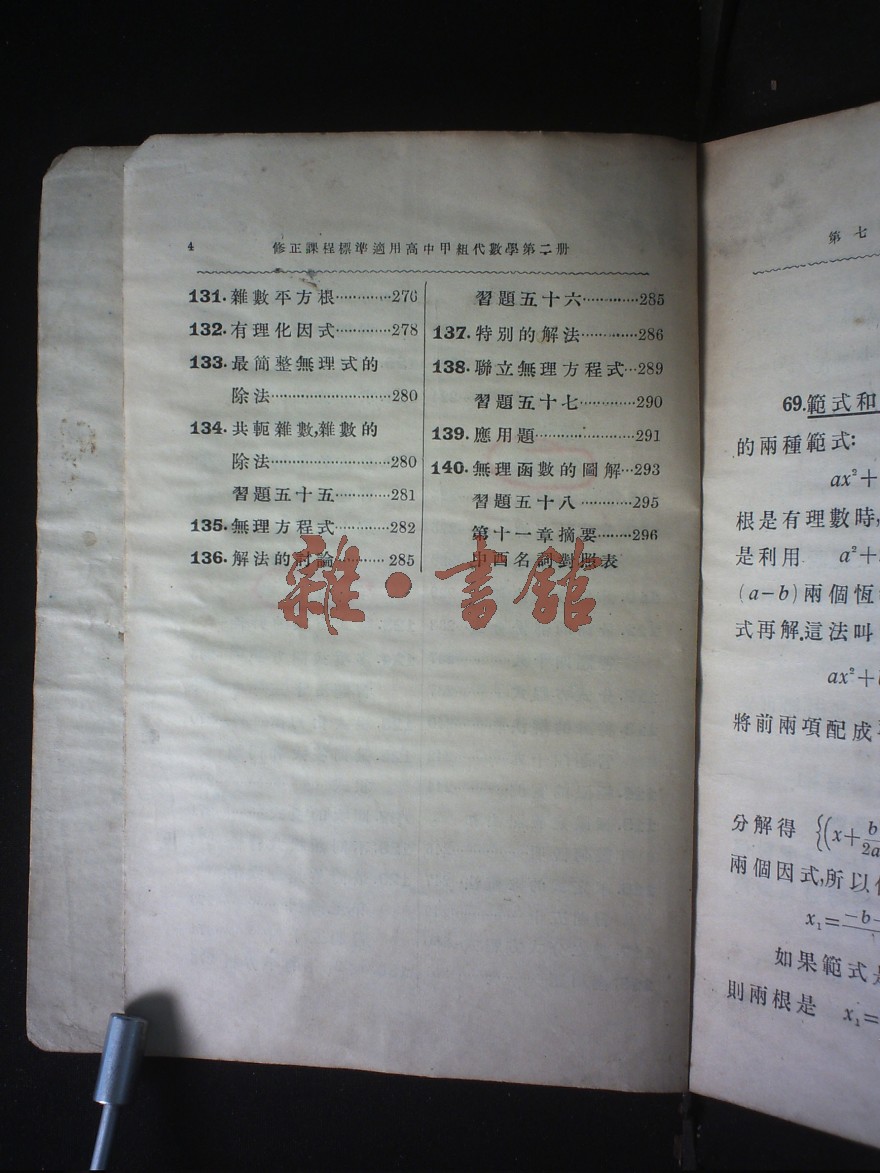 4
修正課程標準適用高中甲組代數學第二册
131.雜數平方根…………276
132.有理化因式…………278
133.最簡整無理式的
除法………………………280
134.共軛雜數,雜數的
除法………………………280
習題五十五…………281
135.無理方程式…………282
136.解法的討論………285
習題五十六…………285
137.特別的解法…………286
138.聯立無理方程式…289
習題五十七…………290
139.應用題…………………291
140.無理函數的圖解…293
習題五十八…………295
第十一章摘要………296
中西名詞對照表
雜·書館
第七
69.範式和
的兩種範式:
ax²+
根是有理數時,
是利用 a²+
(a-b)兩個恆
式再解.這法叫
ax²+
將前兩項配成
分解得 {(x+b/2a
兩個因式,所以
x₁=-b-
如果範式是
則兩根是 x₁=